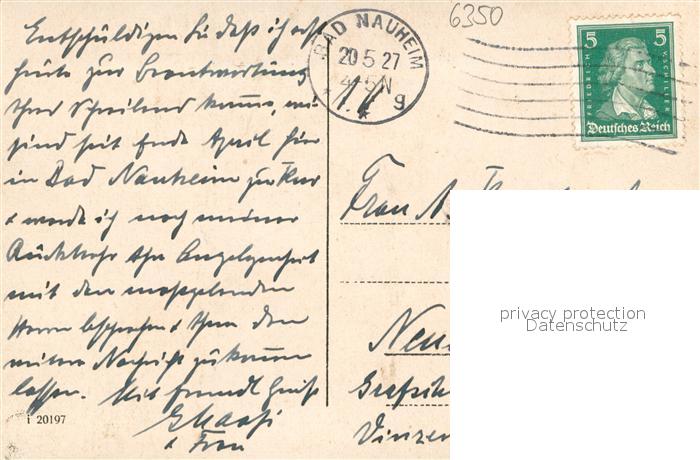 Entschuldigen Sie daß ich erst
heute zur Beantwortung
Ihres Schreibens komme, wir
sind seit Ende April hier
in Bad Nauheim zur Kur
& werde ich nach meiner
Rückkehr Ihre Angelegenheit
mit den massgebenden
Herren besprechen & Ihnen dann
weitere Nachricht zukommen
lassen. Mit freundl Gruß
& Frau
i 20197
BAD NAUHEIM
20 5 27
4-5N
* g
6350
5 5
FRIEDRICH V. SCHILLER
Deutsches Reich
Frau A.
privacy protection
Datenschutz
Neu
Grafsch
Vinzen